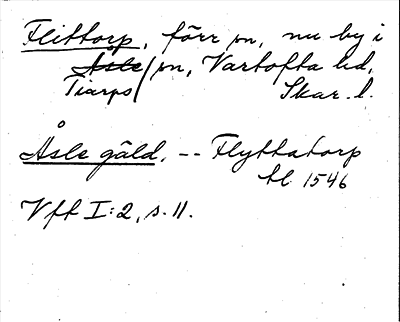 Flittorp, förr sn, nu by i
Åsle/sn, Vartofta hd,
Tiarps Skar. l.
Åsle gäld. -- Flyttatorp
bl. 1546
Vft I:2, s. 11.